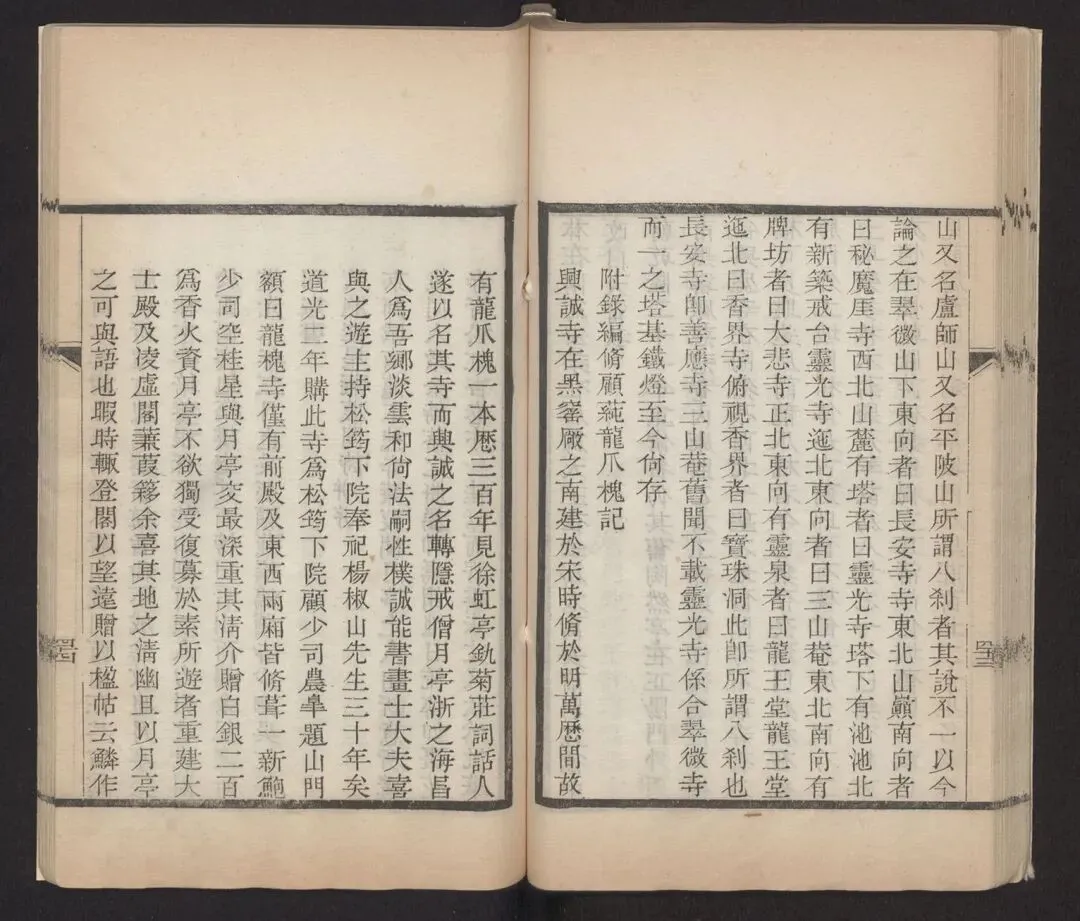 山又名盧師山又名平陂山所謂八刹者其說不一以今
論之在翠微山下東向者曰長安寺寺東北山巔南向者
曰秘魔厓寺西北山麓有塔者曰靈光寺塔下有池池北
有新築戒台靈光寺迤北東向者曰三山菴東北南向有
牌坊者曰大悲寺正北東向有靈泉者曰龍王堂龍王堂
迤北曰香界寺俯視香界者曰寶珠洞此卽所謂八刹也
長安寺卽善應寺三山菴舊聞不載靈光寺係合翠微寺
而一之塔基鐵燈至今尙存
附錄編脩顧蒓龍爪槐記
興誠寺在黑窰厰之南建於宋時脩於明萬歷間故
有龍爪槐一本歷三百年見徐虹亭釚菊莊詞話人
遂以名其寺而興誠之名轉隱戒僧月亭浙之海昌
人爲吾鄉淡雲和尙法嗣性樸誠能書畫士大夫喜
與之遊主持松筠下院奉祀楊椒山先生三十年矣
道光二年購此寺爲松筠下院顧少司農臯題山門
額曰龍槐寺僅有前殿及東西兩廂皆脩葺一新鮑
少司空桂星與月亭交最深重其淸介贈白銀二百
爲香火資月亭不欲獨受復募於素所遊者重建大
士殿及凌虛閣蒹葭簃余喜其地之淸幽且以月亭
之可與語也暇時輒登閣以望遠贈以楹帖云鱗作